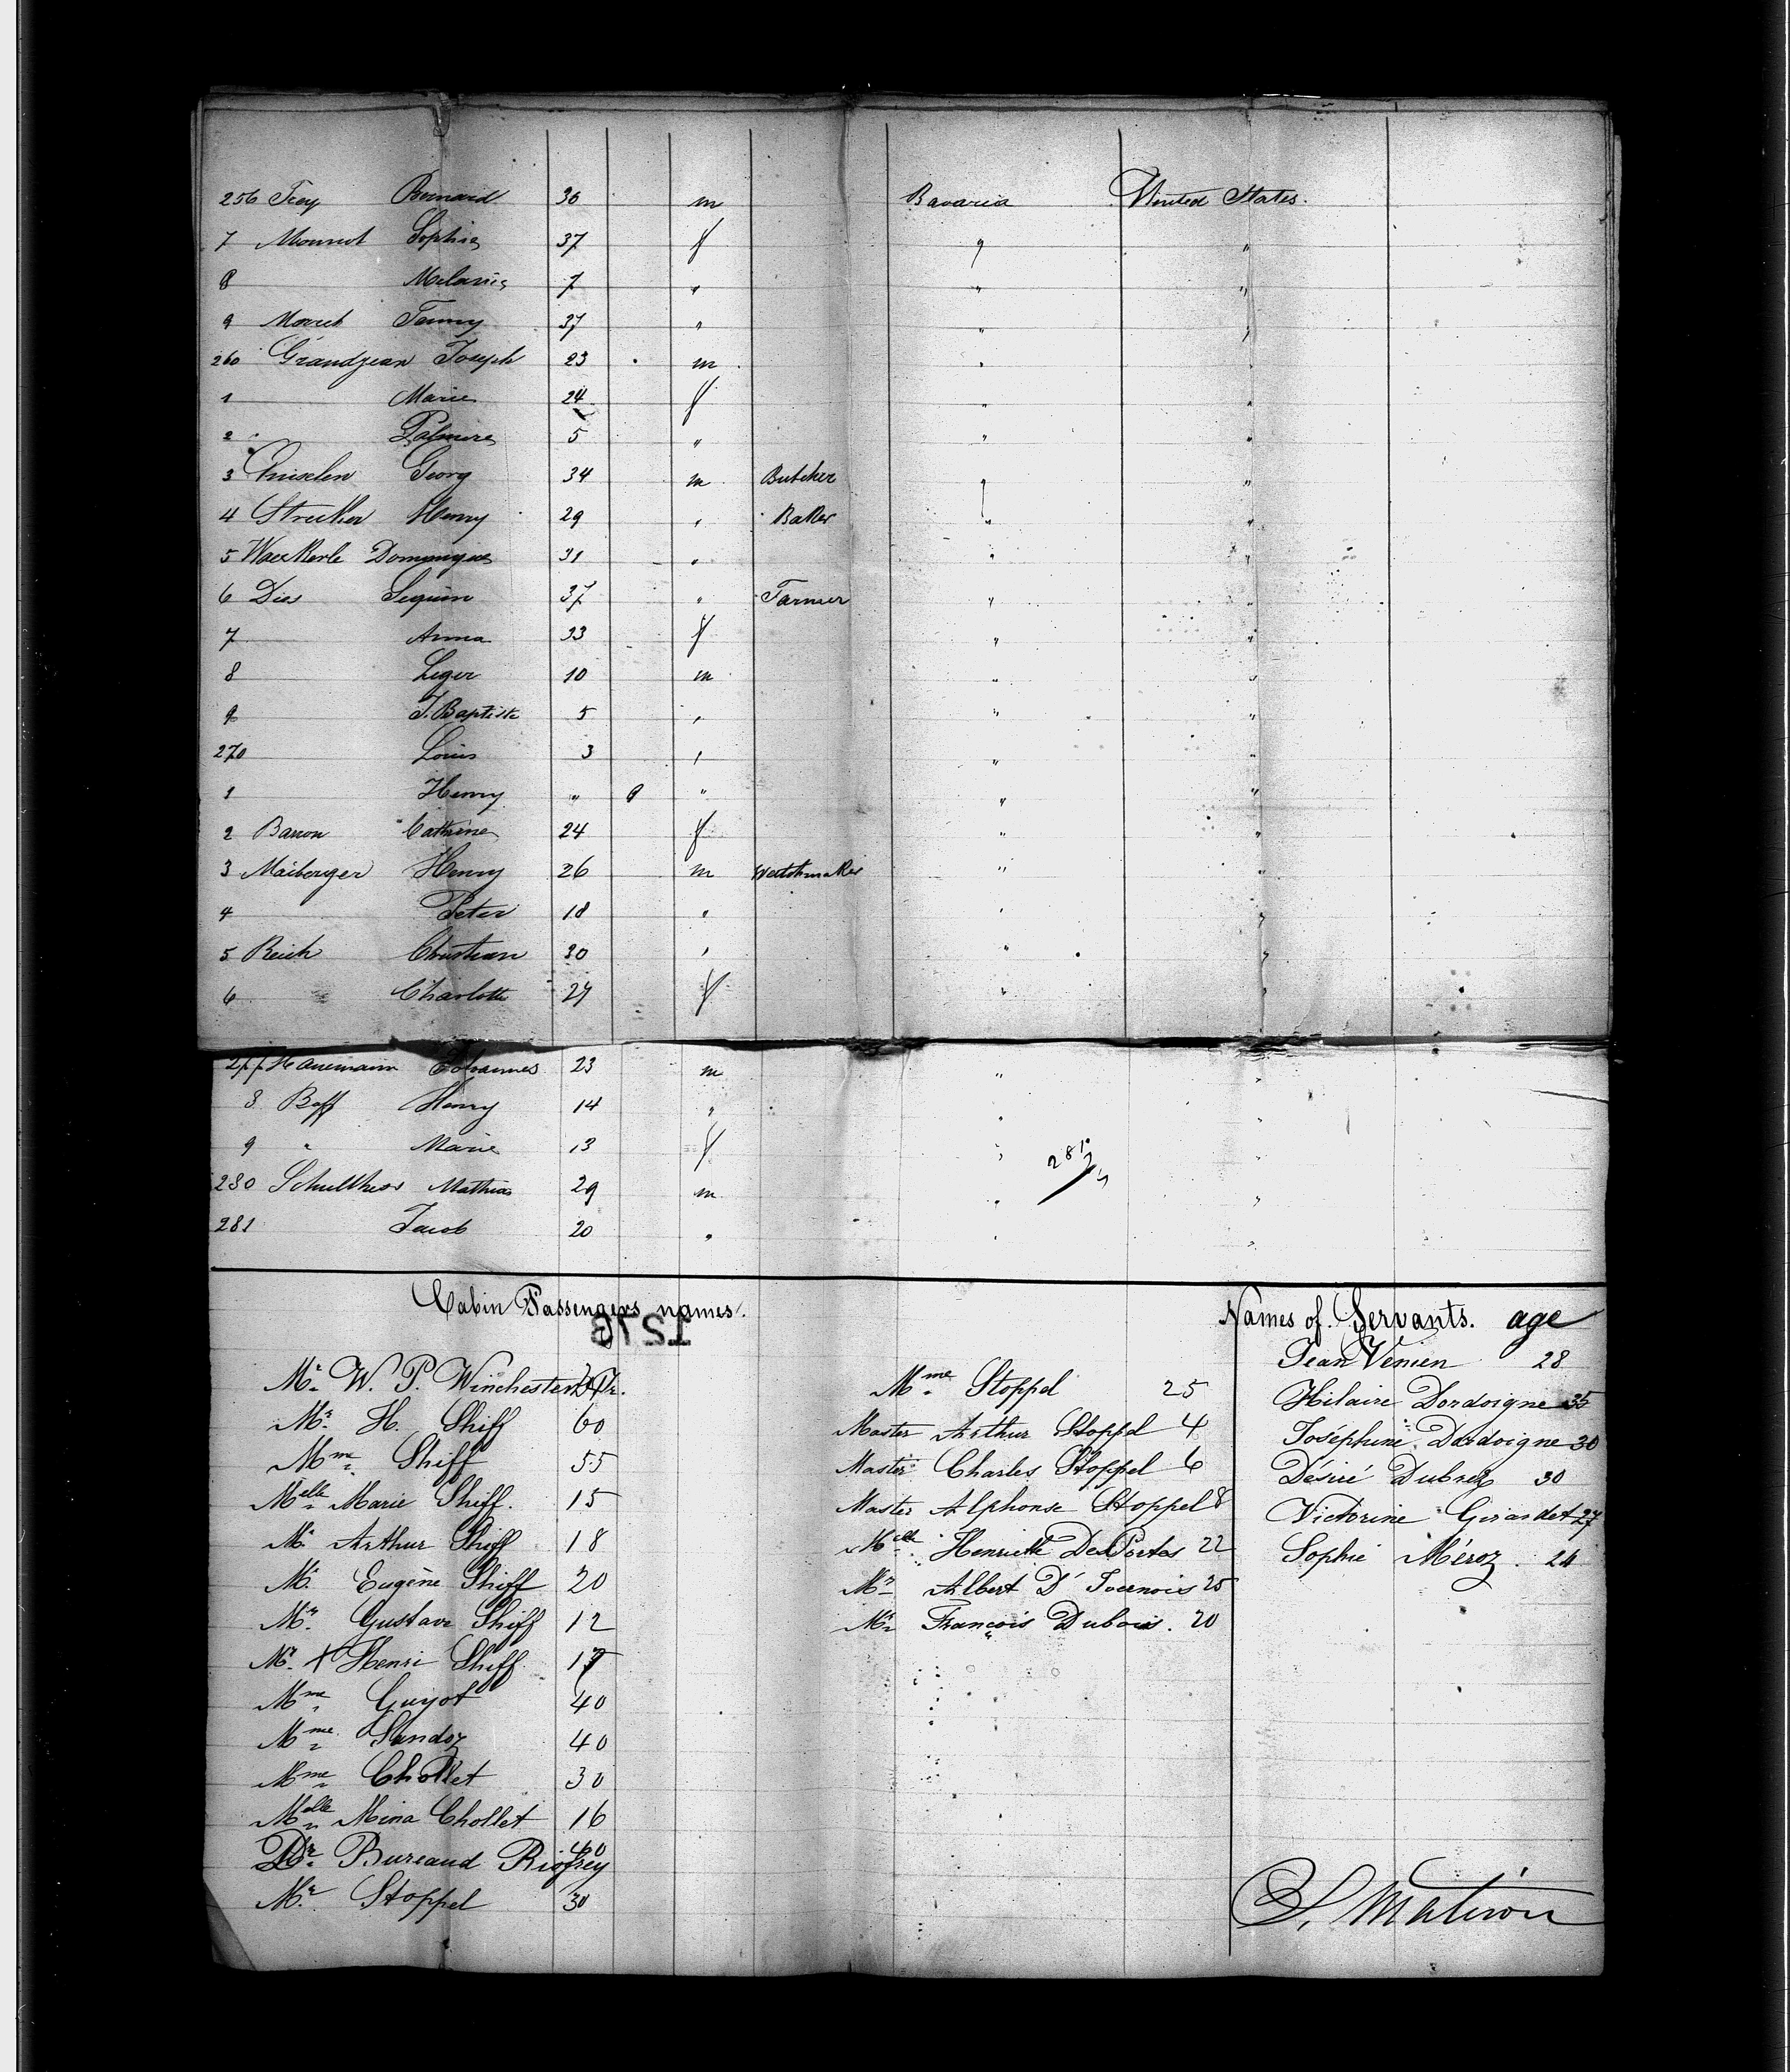 256 Frey Bernard 30 m Bavaria United States.
7 Monnot Sophie 37 f " "
8 Melanie 7 " " "
9 Monet Fanny 37 " " "
260 Grandjean Joseph 23 m " "
1 Marie 24 f " "
2 Palmire 5 " " "
3 Georg 34 m Butcher " "
4 Strecker Henry 29 " Baker " "
5 Waekerle Dominique 31 " " "
6 Dies Sequin 37 " Farmer " "
7 Anna 33 f " "
8 Leger 10 m " "
9 J. Baptiste 5 " " "
270 Louis 3 " " "
1 Henry " 9 " " "
2 Baron Cathrine 24 f " "
3 Maiberger Henry 26 m Watchmaker " "
4 Peter 18 " " "
5 Reich Christian 30 " " "
6 Charlotte 27 f " "
277 Hanemann Johannes 23 m " "
8 Boff Henry 14 " " "
9 " Marie 13 f " "
281
280 Schultheis Mathias 29 m " "
281 Jacob 20 " " "
Cabin Passengers names.
Names of Servants. age
Mr. W. P. Winchester Jr.
Mr. H. Shiff 60
Mme. Shiff 55
Melle. Marie Shiff. 15
Mr. Arthur Shiff 18
Mr. Eugène Shiff 20
Mr. Gustave Shiff 12
Mr. + Henri Shiff 17
Mme. Guyot 40
Mme. Sandoz 40
Mme. Chollet 30
Melle. Mina Chollet 16
Dr. Bureaud Riofrey 40
Mr. Stoppel 30
Mme. Stoppel 25
Master Arthur Stoppel 4
Master Charles Stoppel 6
Master Alphonse Stoppel 8
Melle. Henriette DesPortes 22
Mr. Albert D' Ivernois 25
Mr. François Dubois. 20
Jean Vénien 28
Hilaire Dordoigne 35
Joséphine Dordoigne 30
Désiré Dubrez 30
Victorine Girardet 27
Sophie Méroz. 24